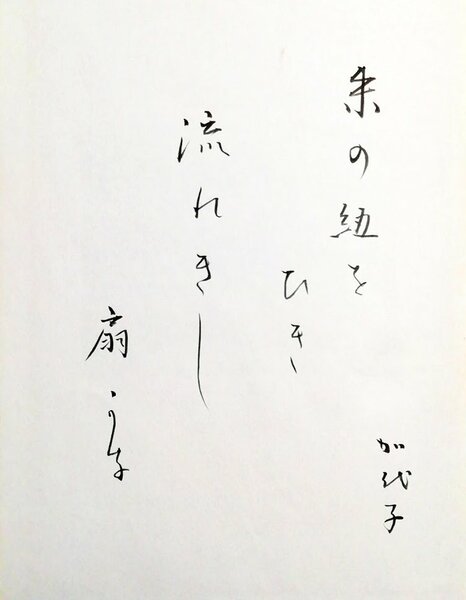 朱の紐を
ひき
流れきし
扇かな
加代子